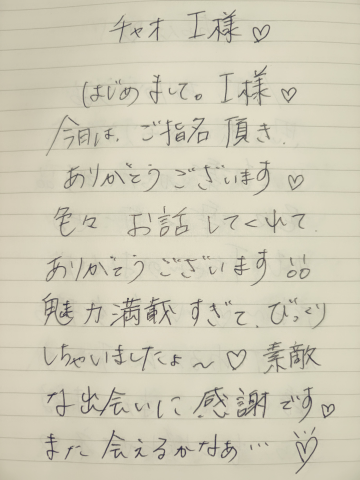 チャオ I様♡
はじめまして。I様♡
今日は、ご指名頂き、
ありがとうございます♡
色々 お話してくれて
ありがとうございます!!
魅力満載すぎて、びっくり
しちゃいましたょ〜♡ 素敵
な出会いに感謝です♡
また会えるかなぁ…♡